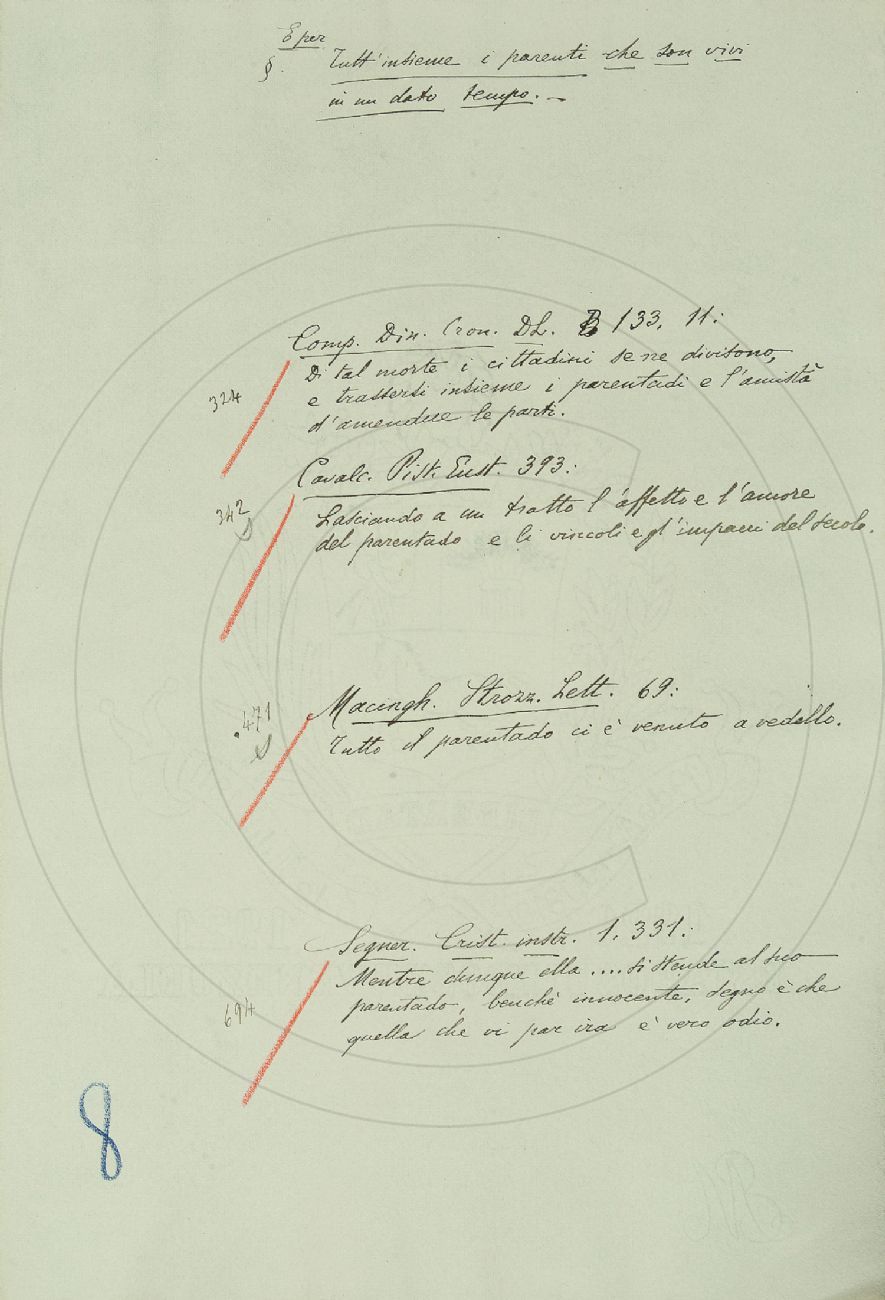 E per
§. Tutt'insieme i parenti che son vivi
in un dato tempo. –
Comp. Din. Cron. DL. 133, 11:
Di tal morte i cittadini se ne divisono,
e trassersi insieme i parentadi e l'amistà
d'amendue le parti.
324
Cavalc. Pist. Eust. 393:
Lasciando a un tratto l'affetto e l'amore
del parentado e li vincoli e gl'impacci del secolo.
342
Macingh. Strozz. Lett. 69:
Tutto il parentado ci è venuto a vedello.
471
Segner. Crist. instr. 1. 331:
Mentre dunque ella .... si stende al suo
parentado, benchè innocente, segno è che
quella che vi par ira è vero odio.
694
8